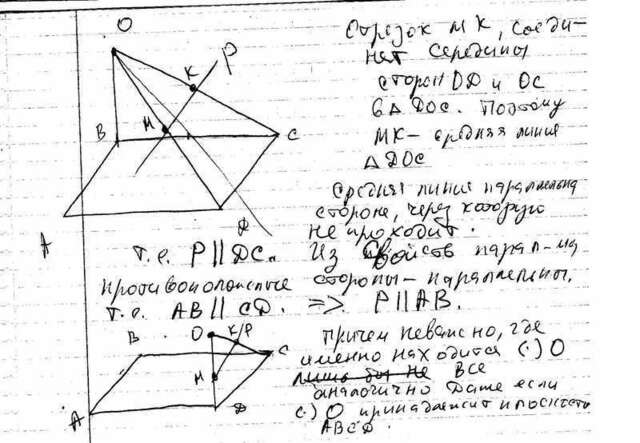 O
K
P
B
M
C
A
D
Отрезок MK, соеди-
нет середины
сторон OD и OC
в △DOC. Поэтому
MK – средняя линия
△DOC
средняя линия параллельна
стороне, через которую
не проходит.
Т.е. P || DC. Из свойств парал-ма
противоположные стороны – параллельны.
Т.е. AB || CD. => P || AB.
O K/P
B
C
M
A
D
Причем неважно, где
именно находится (·) O
лишь бы не Все
аналогично даже если
(·) O принадлежит плоскости
ABCD.